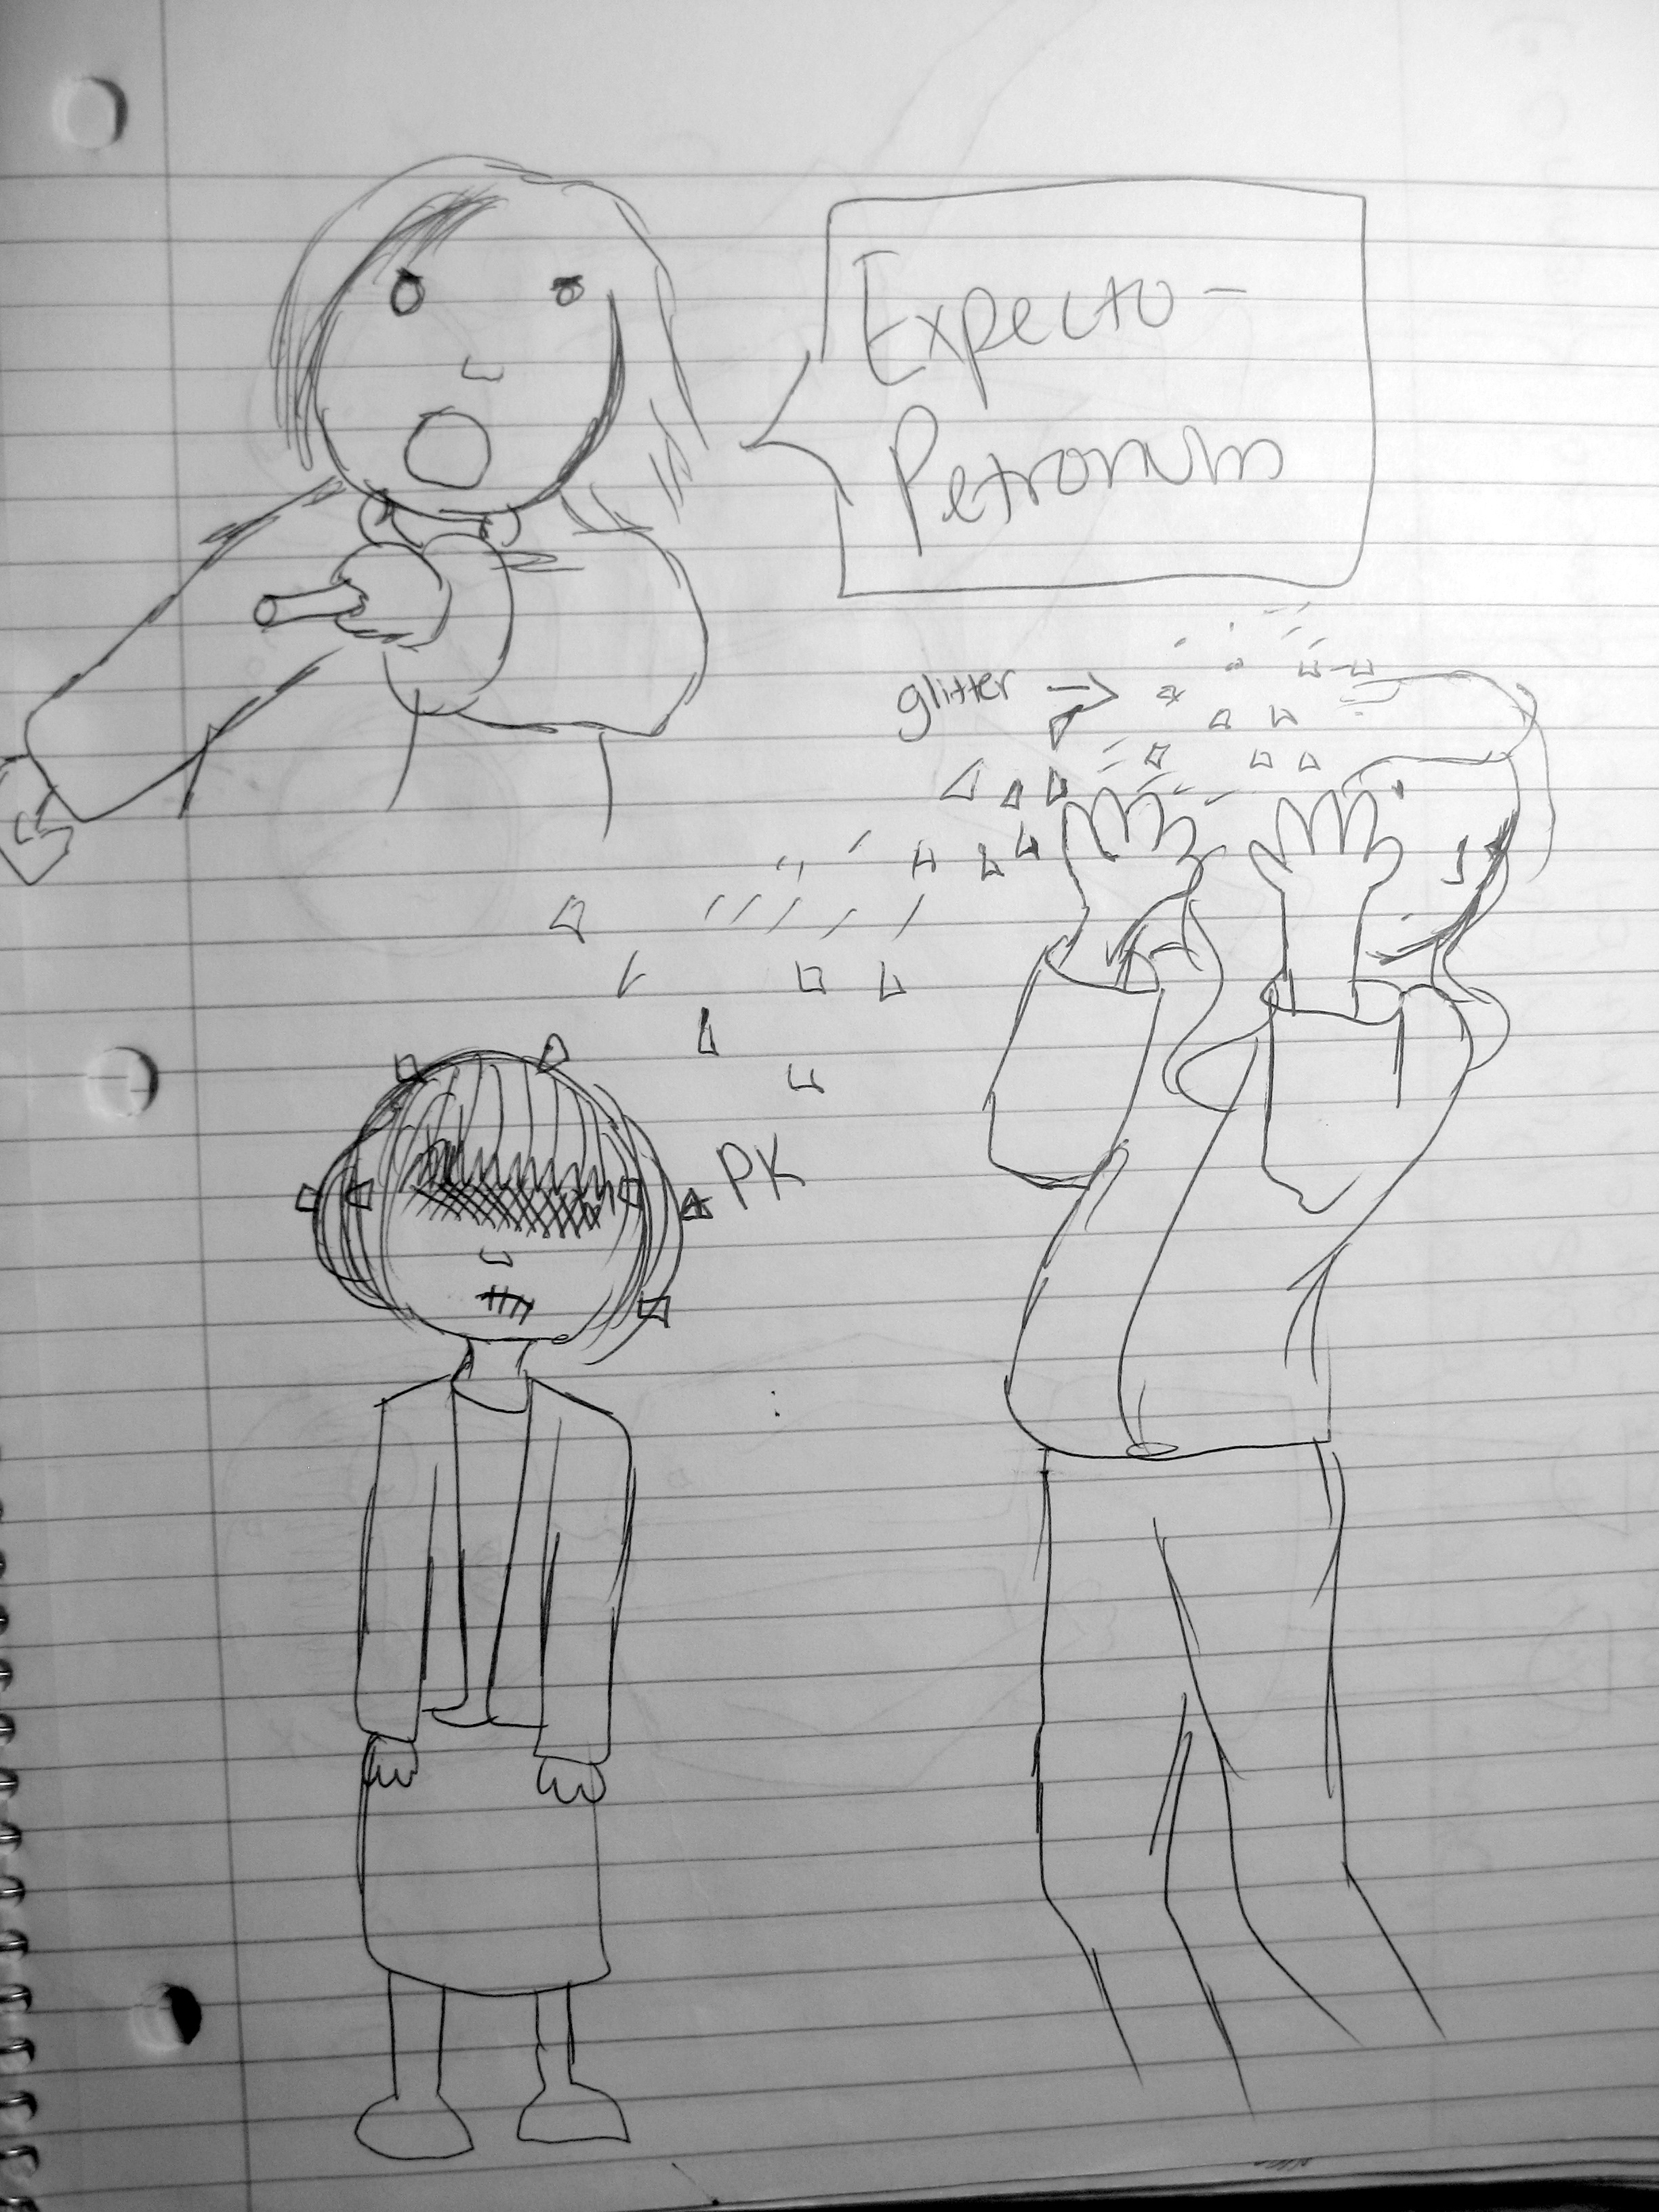 Expecto-
Petronum
glitter →
PK